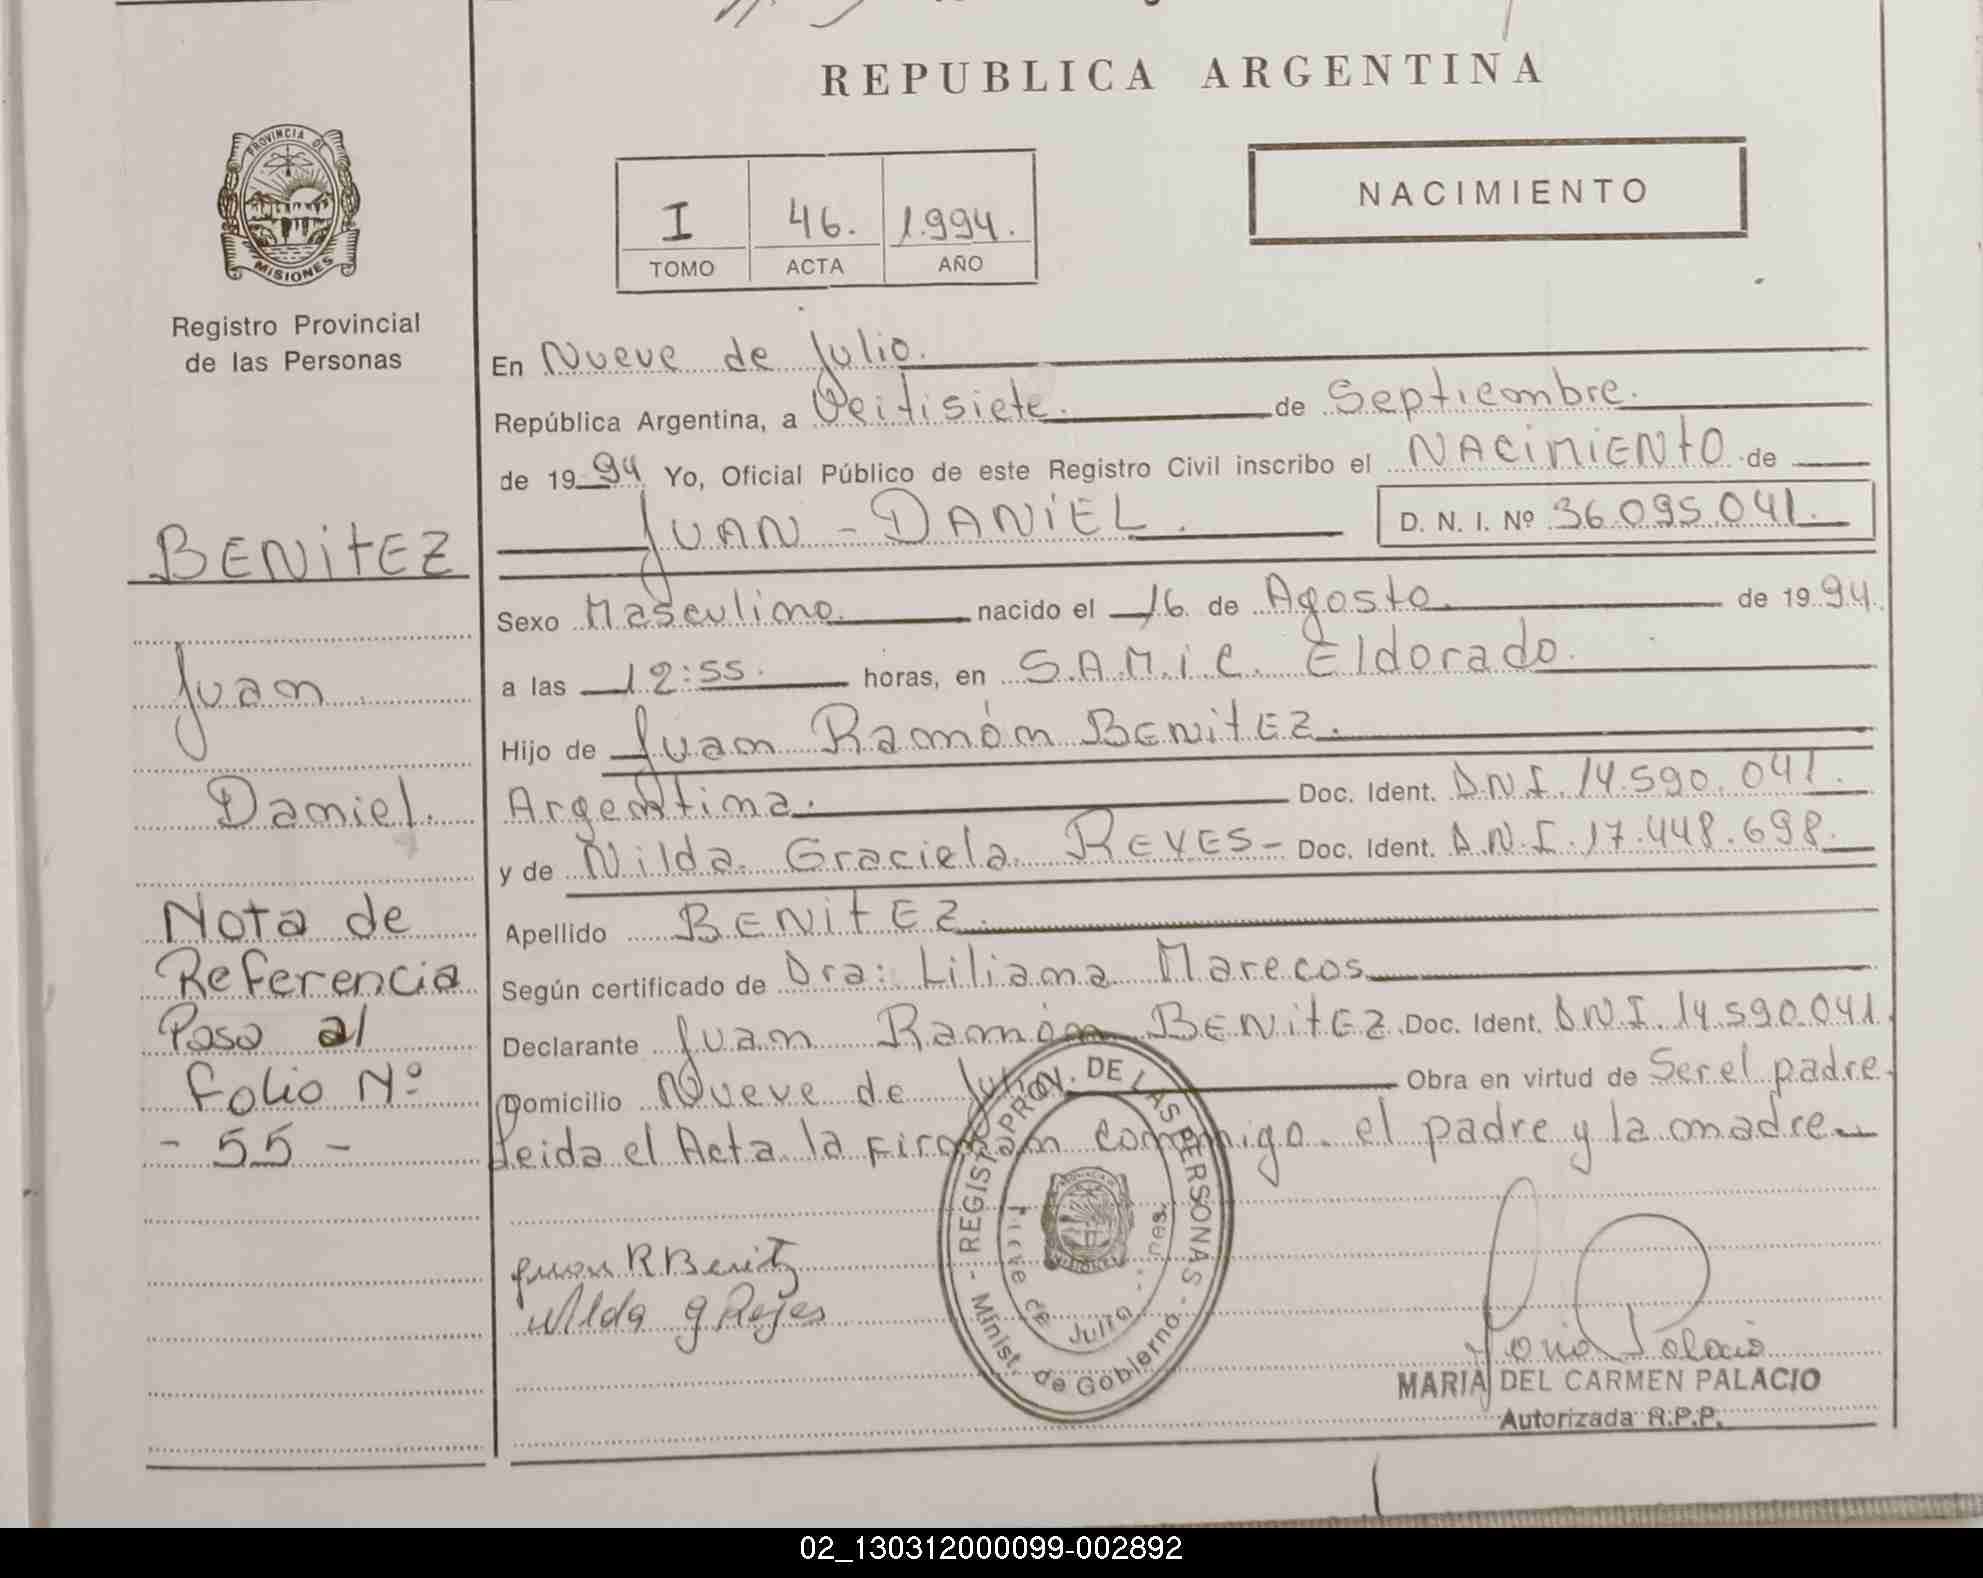 REPUBLICA ARGENTINA
PROVINCIA DE
MISIONES
Registro Provincial
de las Personas
I 46. 1.994.
TOMO ACTA AÑO
NACIMIENTO
En Nueve de Julio.
República Argentina, a Veitisiete. de Septiembre.
de 1994 Yo, Oficial Público de este Registro Civil inscribo el NACIMIENTO de
JUAN - DANIEL. D. N. I. Nº 36.095.041.
Sexo Masculino nacido el 16 de Agosto. de 1994.
a las 12:55. horas, en S.A.M.i.C. Eldorado.
Hijo de Juan Ramón BENITEZ.
Argentina. Doc. Ident. D.N.I. 14.590.041.
y de Nilda Graciela REYES- Doc. Ident. D.N.I. 17.448.698.
Apellido BENITEZ.
Según certificado de Dra: Liliana Marecos
Declarante Juan Ramón BENITEZ Doc. Ident. D.N.I. 14.590.041.
Domicilio Nueve de Julio. Obra en virtud de Ser el padre.
Leida el Acta la Firman conmigo el padre y la madre
BENITEZ
Juan
Daniel.
Nota de
Referencia
Pasa al
Folio Nº
- 55 -
Juan R Benitz
Nilda g Reyes
REGIST. PROV. DE LAS PERSONAS
Minist. de Gobierno
de Julio
MISIONES
MARIA DEL CARMEN PALACIO
Autorizada R.P.P.
02_130312000099-002892